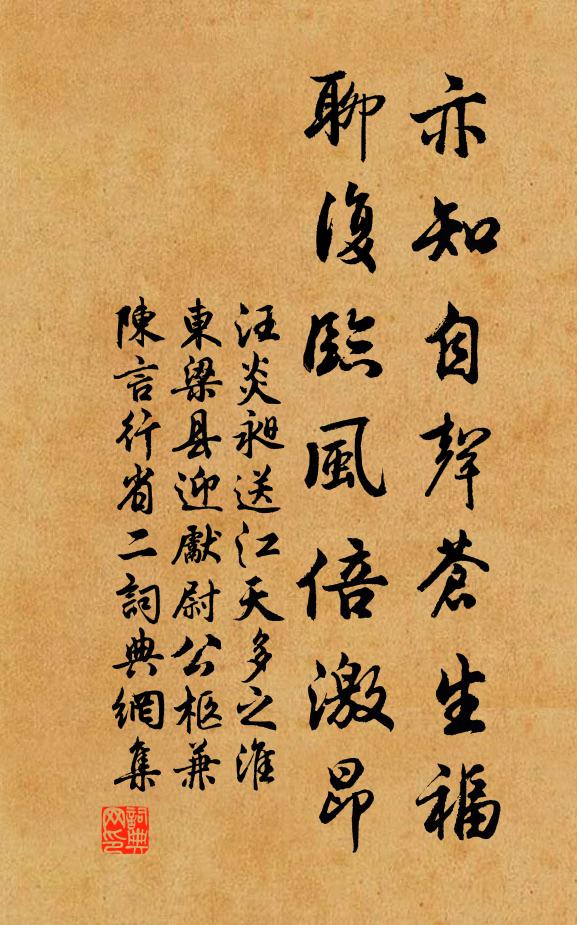 亦知自聲蒼生福
聊復臨風倍激昂
汪炎昶送江天多之淮
東梁县迎獻尉公柩兼
陳言行省二詞典網集
詞典网印